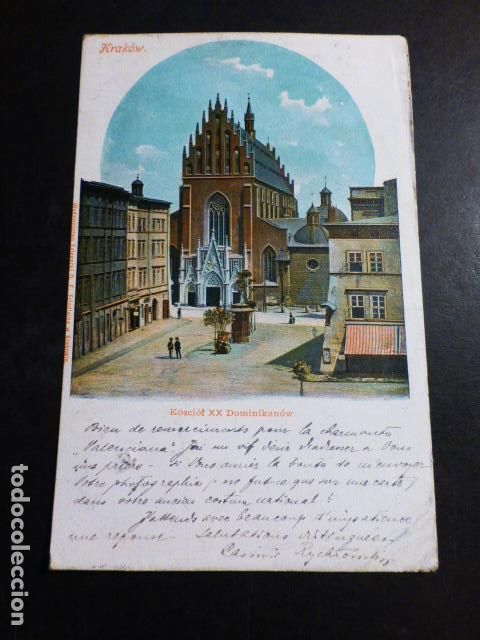 Kraków.
Kościół XX Dominikanów.
Bien de remerciments pour la charmante
"Valenciana" J'ai un vif désir d'adresser a Vous
une prière - si Vous auriez la bonté de m'envoyer
Votre photographie, ne fut-ce que sur une carte,
dans votre ancien costum national?
J'attends avec beaucoup d'impatience
une reponse. Salutations distinguées
Casimir
todocoleccion